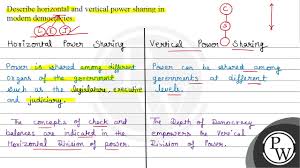 Describe horizontal and vertical power sharing in
modern democracies.
L E J
C
S
Horizontal Power Sharing
Vertical Power Sharing
Power is shared among different
Organs of the government
such as the legislature, executive
and judiciary.
Power can be shared among
governments at different
levels.
The concepts of check and
balances are indicated in the
Horizontal Division of power.
The Depth of Democracy
empowers the Vertical
Division of Power.
PW